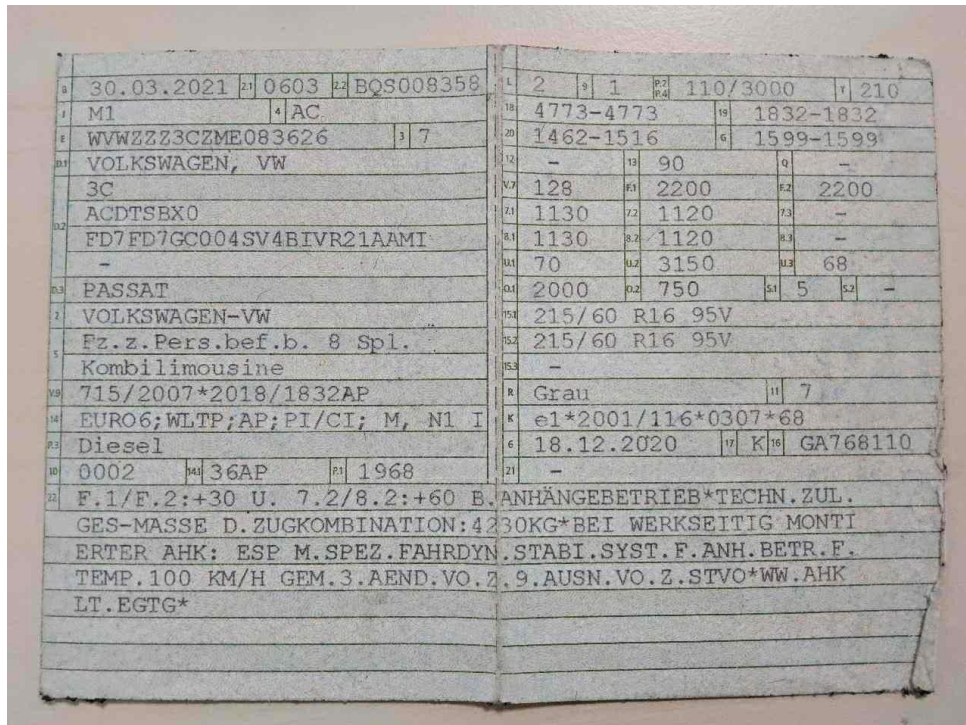 B 30.03.2021 2.1 0603 2.2 BQS008358
J M1 4 AC
E WVWZZZ3CZME083626 3 7
D.1 VOLKSWAGEN, VW
3C
D.2 ACDTSBX0
FD7FD7GC004SV4BIVR21AAMI
–
D.3 PASSAT
2 VOLKSWAGEN-VW
5 Fz.z.Pers.bef.b. 8 Spl.
Kombilimousine
V.9 715/2007*2018/1832AP
14 EURO6;WLTP;AP;PI/CI; M, N1 I
P.3 Diesel
10 0002 14.1 36AP P.1 1968
L 2 9 1 P.2 P.4 110/3000 T 210
18 4773-4773 19 1832-1832
20 1462-1516 G 1599-1599
12 – 13 90 Q –
V.7 128 F.1 2200 F.2 2200
7.1 1130 7.2 1120 7.3 –
8.1 1130 8.2 1120 8.3 –
U.1 70 U.2 3150 U.3 68
O.1 2000 O.2 750 S.1 5 S.2 –
15.1 215/60 R16 95V
15.2 215/60 R16 95V
15.3 –
R Grau 11 7
K e1*2001/116*0307*68
6 18.12.2020 17 K 16 GA768110
21 –
22 F.1/F.2:+30 U. 7.2/8.2:+60 B.ANHÄNGEBETRIEB*TECHN.ZUL.
GES-MASSE D.ZUGKOMBINATION:4230KG*BEI WERKSEITIG MONTI
ERTER AHK: ESP M.SPEZ.FAHRDYN.STABI.SYST.F.ANH.BETR.F.
TEMP.100 KM/H GEM.3.AEND.VO.Z.9.AUSN.VO.Z.STVO*WW.AHK
LT.EGTG*